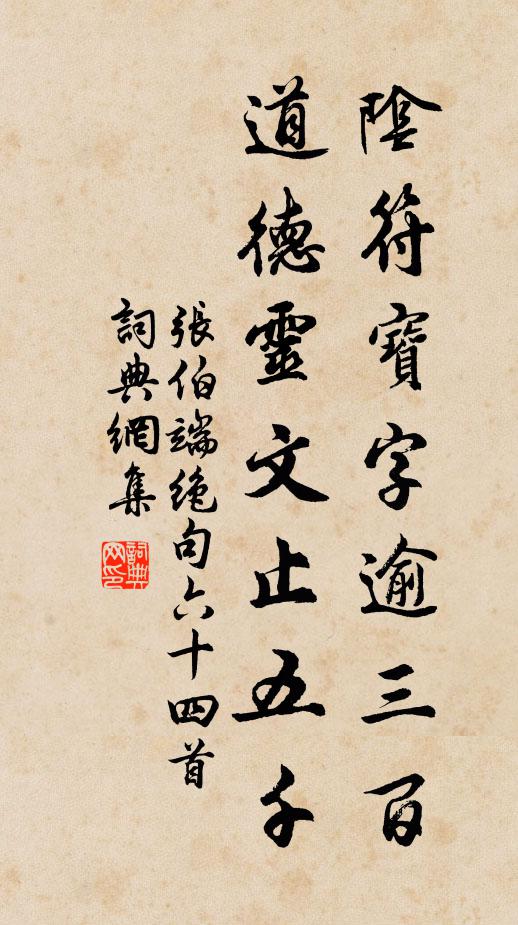 陰符寶字逾三百
道德靈文止五千
張伯端絕句六十四首
詞典網集
詞典網印